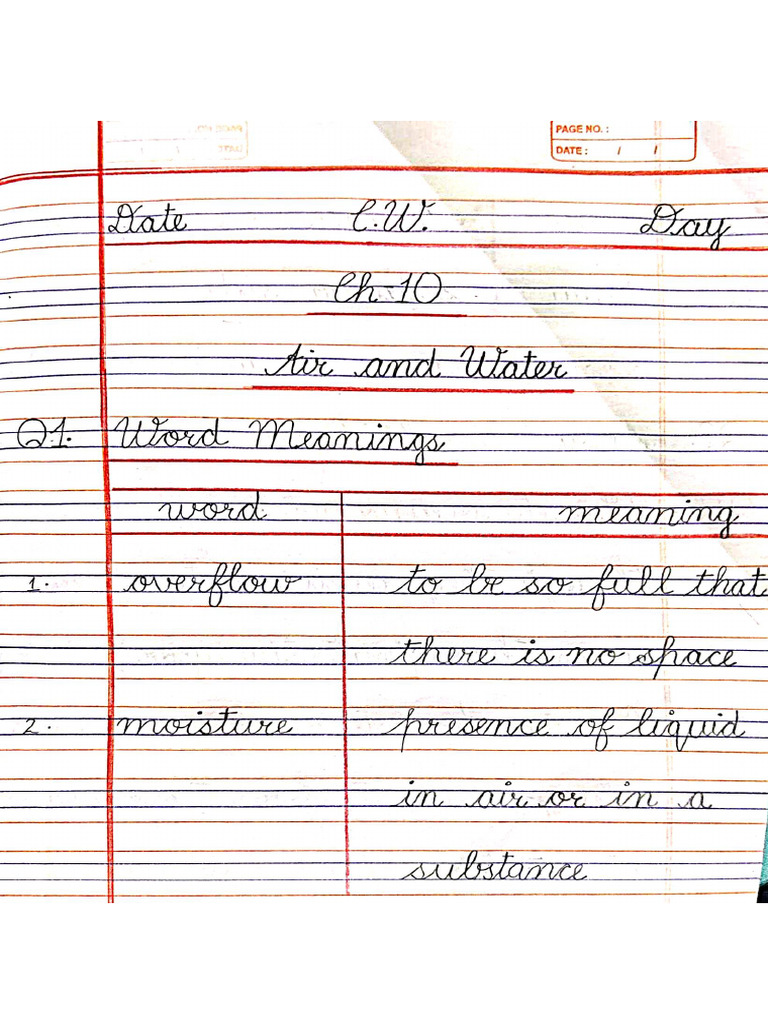 PAGE NO. :
DATE : / /
Date C.W. Day
Ch-10
Air and Water
Q1. Word Meanings
word meaning
1. overflow to be so full that
there is no space
2. moisture presence of liquid
in air or in a
substance